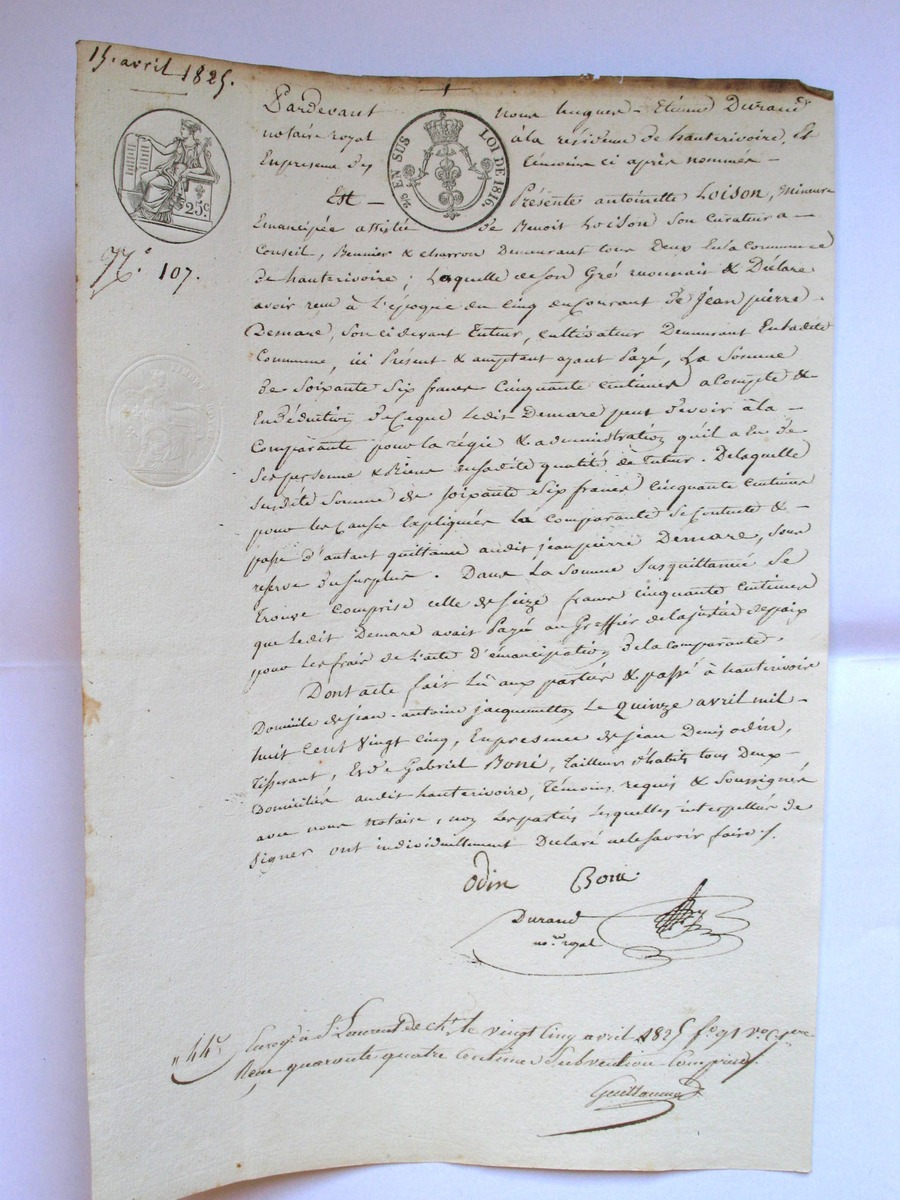 15. avril 1825.
Pardevant nous Étiene Durand
notaire royal à la residence de hauterivoire, Et
En presence des témoins ci après nommés -
25c
¼ EN SUS
LOI DE 1816.
Est - Présente antoinette Loison, mineure
Emancipée assistée de Benoit Loison son curateur a -
Conseil, & charron Demeurant tous deux En la Commune
de hauterivoire ; Laquelle de son Gré reconnait & Déclare
N.º 107.
avoir reçu à L'époque du cinq du Courant de Jean pierre
Demare, son ci devant tuteur, cultivateur Demeurant En ladite
Commune, ici Présent & acceptant ayant Payé, La Somme
de Soixante Six francs Cinquante Centimes a compte &
En Déduction de Ce que Ledit Demare peut devoir à la -
Comparante pour la régie & administration qu'il a Eu de
Ses personne & Biens en sadite qualité de tuteur. De laquelle
susdite Somme de soixante Six francs Cinquante Centimes
pour les causes Expliquées la Comparante se Contente & -
passe d'autant quittance audit jean pierre Demare, sous
reserve du surplus. Dans La Somme susquittancée se
trouve Comprise celle de Seize francs cinquante centimes
que Ledit Demare avait Payé au Greffier de la justice de paix
pour les frais de L'acte d'émancipation de la comparante.
Dont acte fait Lû aux parties & passé à hauterivoire
Domicile de jean-antoine jacquemetton Le quinze avril mil -
huit Cent Vingt Cinq, En presence de jean Denis odin,
tisserant, Et de Gabriel Boni, tailleur d'habits tous Deux -
Domiciliés audit hauterivoire, témoins requis & Soussignés
avec nous notaire, non Les parties lesquelles interpellées de
signer ont individuellement Déclaré ne le savoir faire ./.
Odin Boni
Durand
no.re royal
44c Enreg.é à S.t Laurent de ch.t le vingt Cinq avril 1825 f.o 91 v.o
Reçu quarante quatre centimes Subvention Comprise.